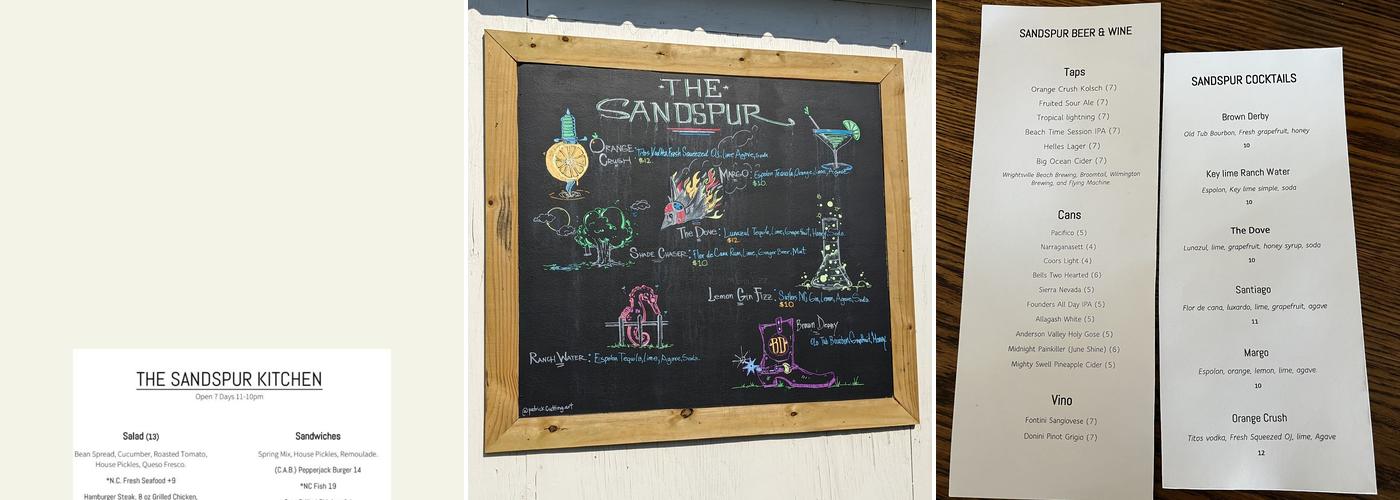 THE SANDSPUR KITCHEN
Open 7 Days 11-10pm
Salad (13)
Bean Spread, Cucumber, Roasted Tomato,
House Pickles, Queso Fresco.
*N.C. Fresh Seafood +9
Hamburger Steak, 8 oz Grilled Chicken,
Sandwiches
Spring Mix, House Pickles, Remoulade.
(C.A.B.) Pepperjack Burger 14
*NC Fish 19
THE
SANDSPUR
ORANGE
CRUSH: Titos Vodka, Fresh Squeezed OJ, Lime, Agave, Soda
$12
MARGO: Espolon Tequila, Orange, Lime, Agave
$10
The Dove: Lunazul Tequila, Lime, Grapefruit, Honey, Soda
$12
SHADE CHASER: Flor de Cana Rum, Lime, Ginger Beer, Mint
$10
Lemon Gin Fizz: Gin, Lemon, Agave, Soda
$10
Brown Derby
Old Tub Bourbon, Grapefruit, Honey
BD
RANCH WATER: Espolon Tequila, Lime, Agave, Soda
@patrickcutting.art
SANDSPUR BEER & WINE
Taps
Orange Crush Kolsch (7)
Fruited Sour Ale (7)
Tropical lightning (7)
Beach Time Session IPA (7)
Helles Lager (7)
Big Ocean Cider (7)
Wrightsville Beach Brewing, Broomtail, Wilmington
Brewing, and Flying Machine
Cans
Pacifico (5)
Narraganasett (4)
Coors Light (4)
Bells Two Hearted (6)
Sierra Nevada (5)
Founders All Day IPA (5)
Allagash White (5)
Anderson Valley Holy Gose (5)
Midnight Painkiller (June Shine) (6)
Mighty Swell Pineapple Cider (5)
Vino
Fontini Sangiovese (7)
Donini Pinot Grigio (7)
SANDSPUR COCKTAILS
Brown Derby
Old Tub Bourbon, Fresh grapefruit, honey
10
Key lime Ranch Water
Espolon, Key lime simple, soda
10
The Dove
Lunazul, lime, grapefruit, honey syrup, soda
10
Santiago
Flor de cana, luxardo, lime, grapefruit, agave
11
Margo
Espolon, orange, lemon, lime, agave
10
Orange Crush
Titos vodka, Fresh Squeezed OJ, lime, Agave
12